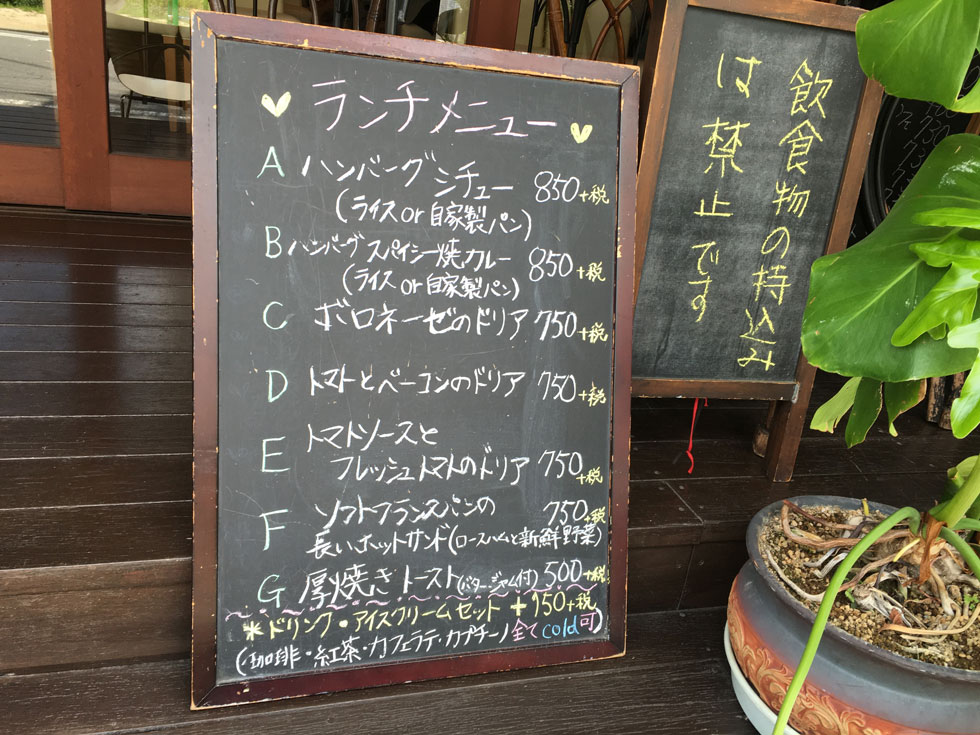 ランチメニュー
A ハンバーグシチュー 850+税
(ライスor自家製パン)
B ハンバーグスパイシー焼カレー 850+税
(ライスor自家製パン)
C ボロネーゼのドリア 750+税
D トマトとベーコンのドリア 750+税
E トマトソースと
フレッシュトマトのドリア 750+税
F ソフトフランスパンの 750+税
長いホットサンド(ロースハムと新鮮野菜)
G 厚焼きトースト(バター・ジャム付) 500+税
*ドリンク・アイスクリームセット +150+税
(珈琲・紅茶・カフェラテ・カプチーノ全てcold可)
飲食物の持込み
は禁止です